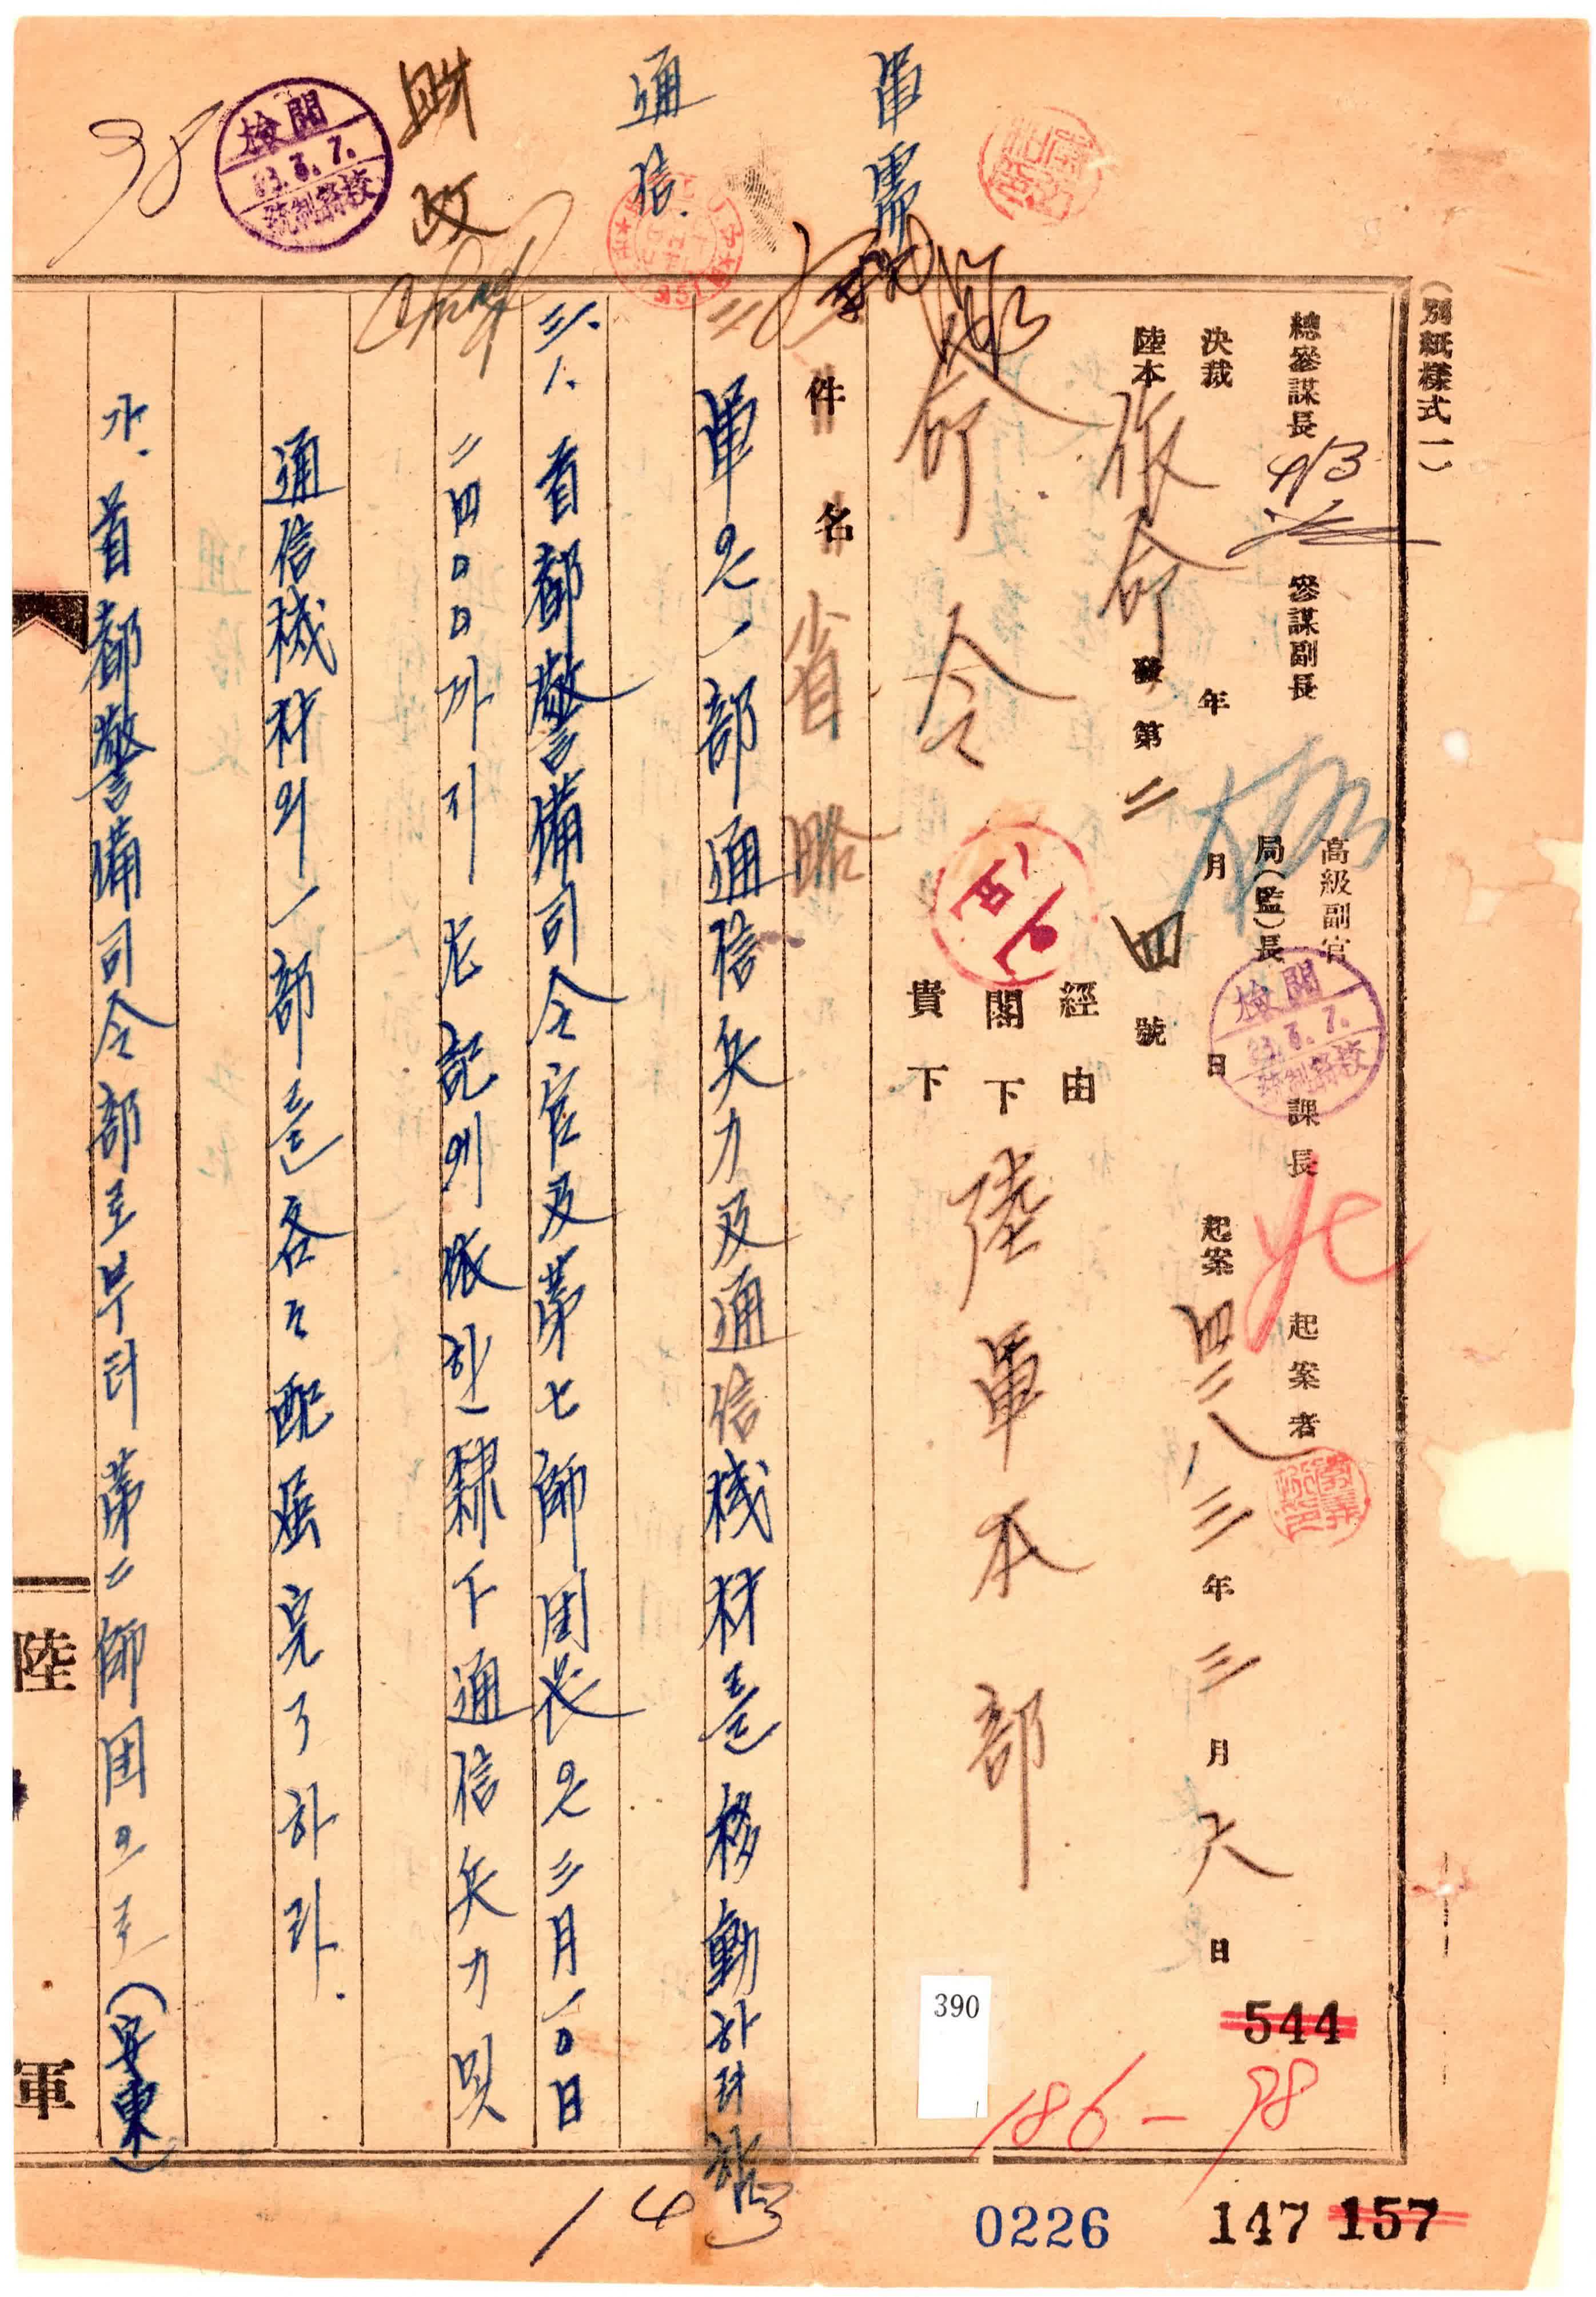 (別紙樣式一)
軍需
通信
財政
38
檢閱
83.3.7.
統制濟校
總參謀長 參謀副長 高級副官 局(監)長 課長 起案者
決裁 年 月 日 起案 四二八三年 三月 六日
陸本 作命 發第 二四 號
命令
經由
閣下
貴下
陸軍本部
件名 省略
二 軍은 一部 通信兵力及 通信機材를 移動하려 함
三 1. 首都警備司令官及 第七師団長은 三月 一0日
二四00까지 左記에 依한 隸下 通信兵力 및
通信機材의 一部를 各々 配屬 完了 하라.
가. 首都警備司令部로부터 第二師団으로 (安東)
陸
軍
檢閱
83.3.7.
統制濟校
390
544
186-98
14
0226
147
157